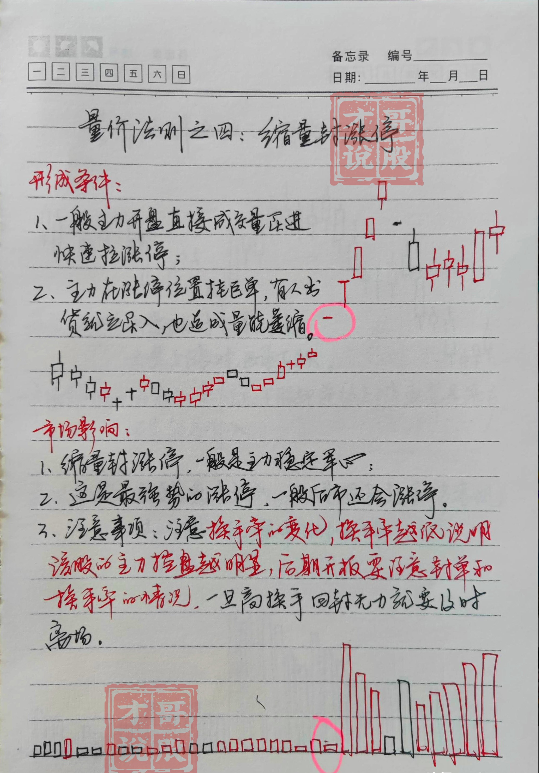 备忘录 编号
一 二 三 四 五 六 日
日期： 年 月 日
才哥说股
量价法则之四：缩量封涨停
形成条件：
1、一般主力开盘直接成交量买进
快速拉涨停；
2、主力在涨停位置挂巨单，有人出
货就立买入，也造成量能萎缩。
市场影响：
1、缩量封涨停，一般是主力稳定军心；
2、这是最强势的涨停，一般后市还会涨停。
3、注意事项：注意换手率的变化，换手率越低说明
该股的主力控盘越明显，后期开板要注意封单和
换手率的情况，一旦高换手回封无力就要及时
离场。
才哥说股